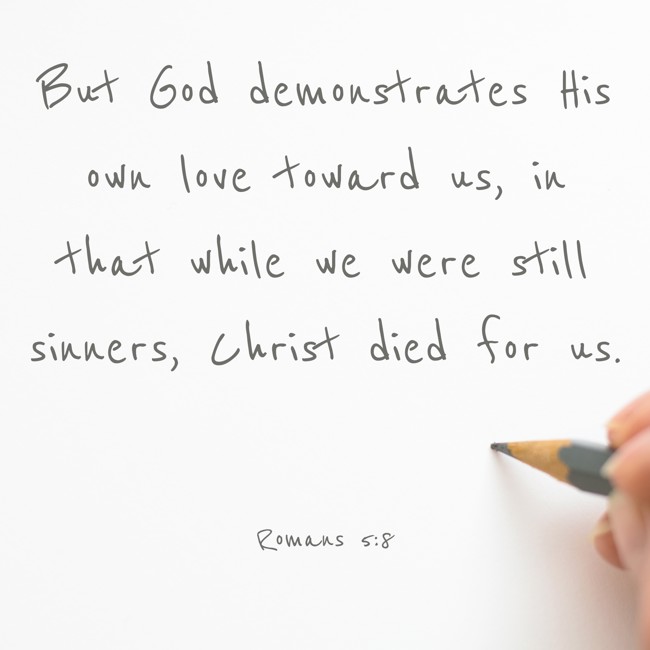 But God demonstrates His
own love toward us, in
that while we were still
sinners, Christ died for us.
Romans 5:8